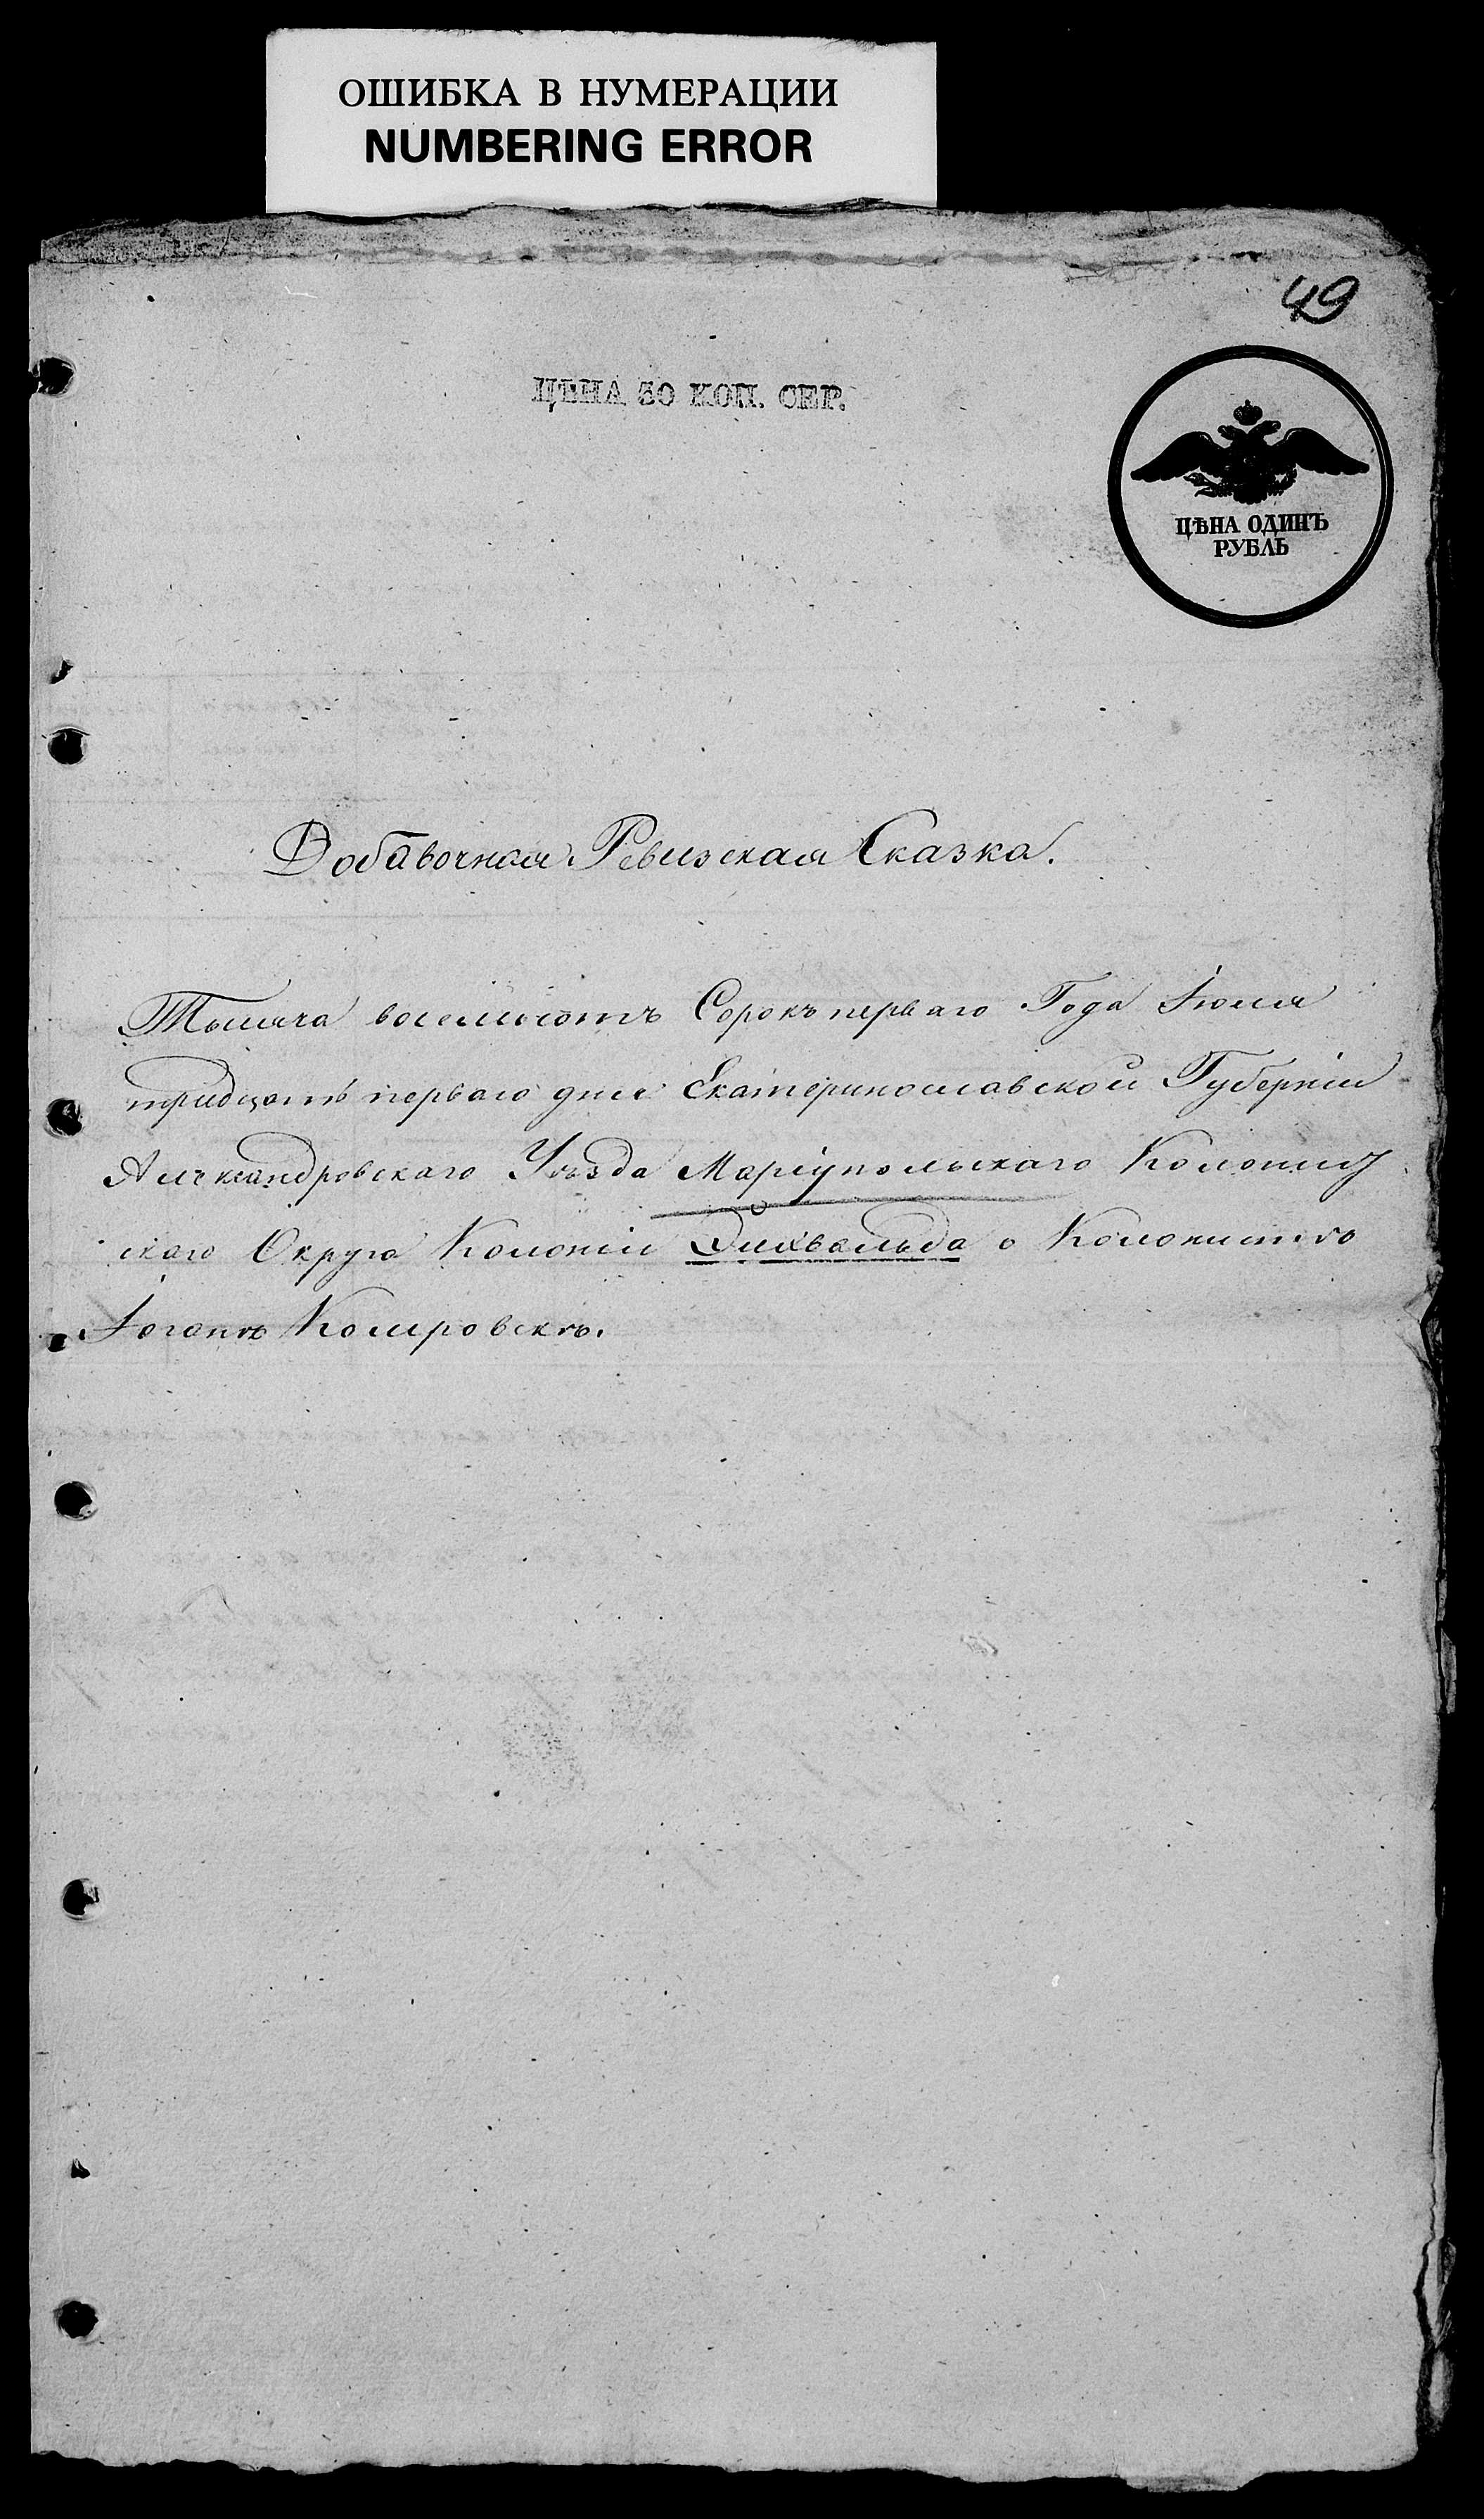 ОШИБКА В НУМЕРАЦИИ
NUMBERING ERROR
49
ЦѢНА 30 КОП. СЕР.
ЦѢНА ОДИНЪ
РУБЛЬ
Добавочная Ревизская Сказка.
Тысяча восемьсотъ Сорокъ перваго Года Іюля
тридцать перваго дня Екатеринославской Губерніи
Александровскаго Уѣзда Маріупольскаго Колонист
скаго Округа Колоніи Эихвальда о Колонистѣ
Іоганѣ